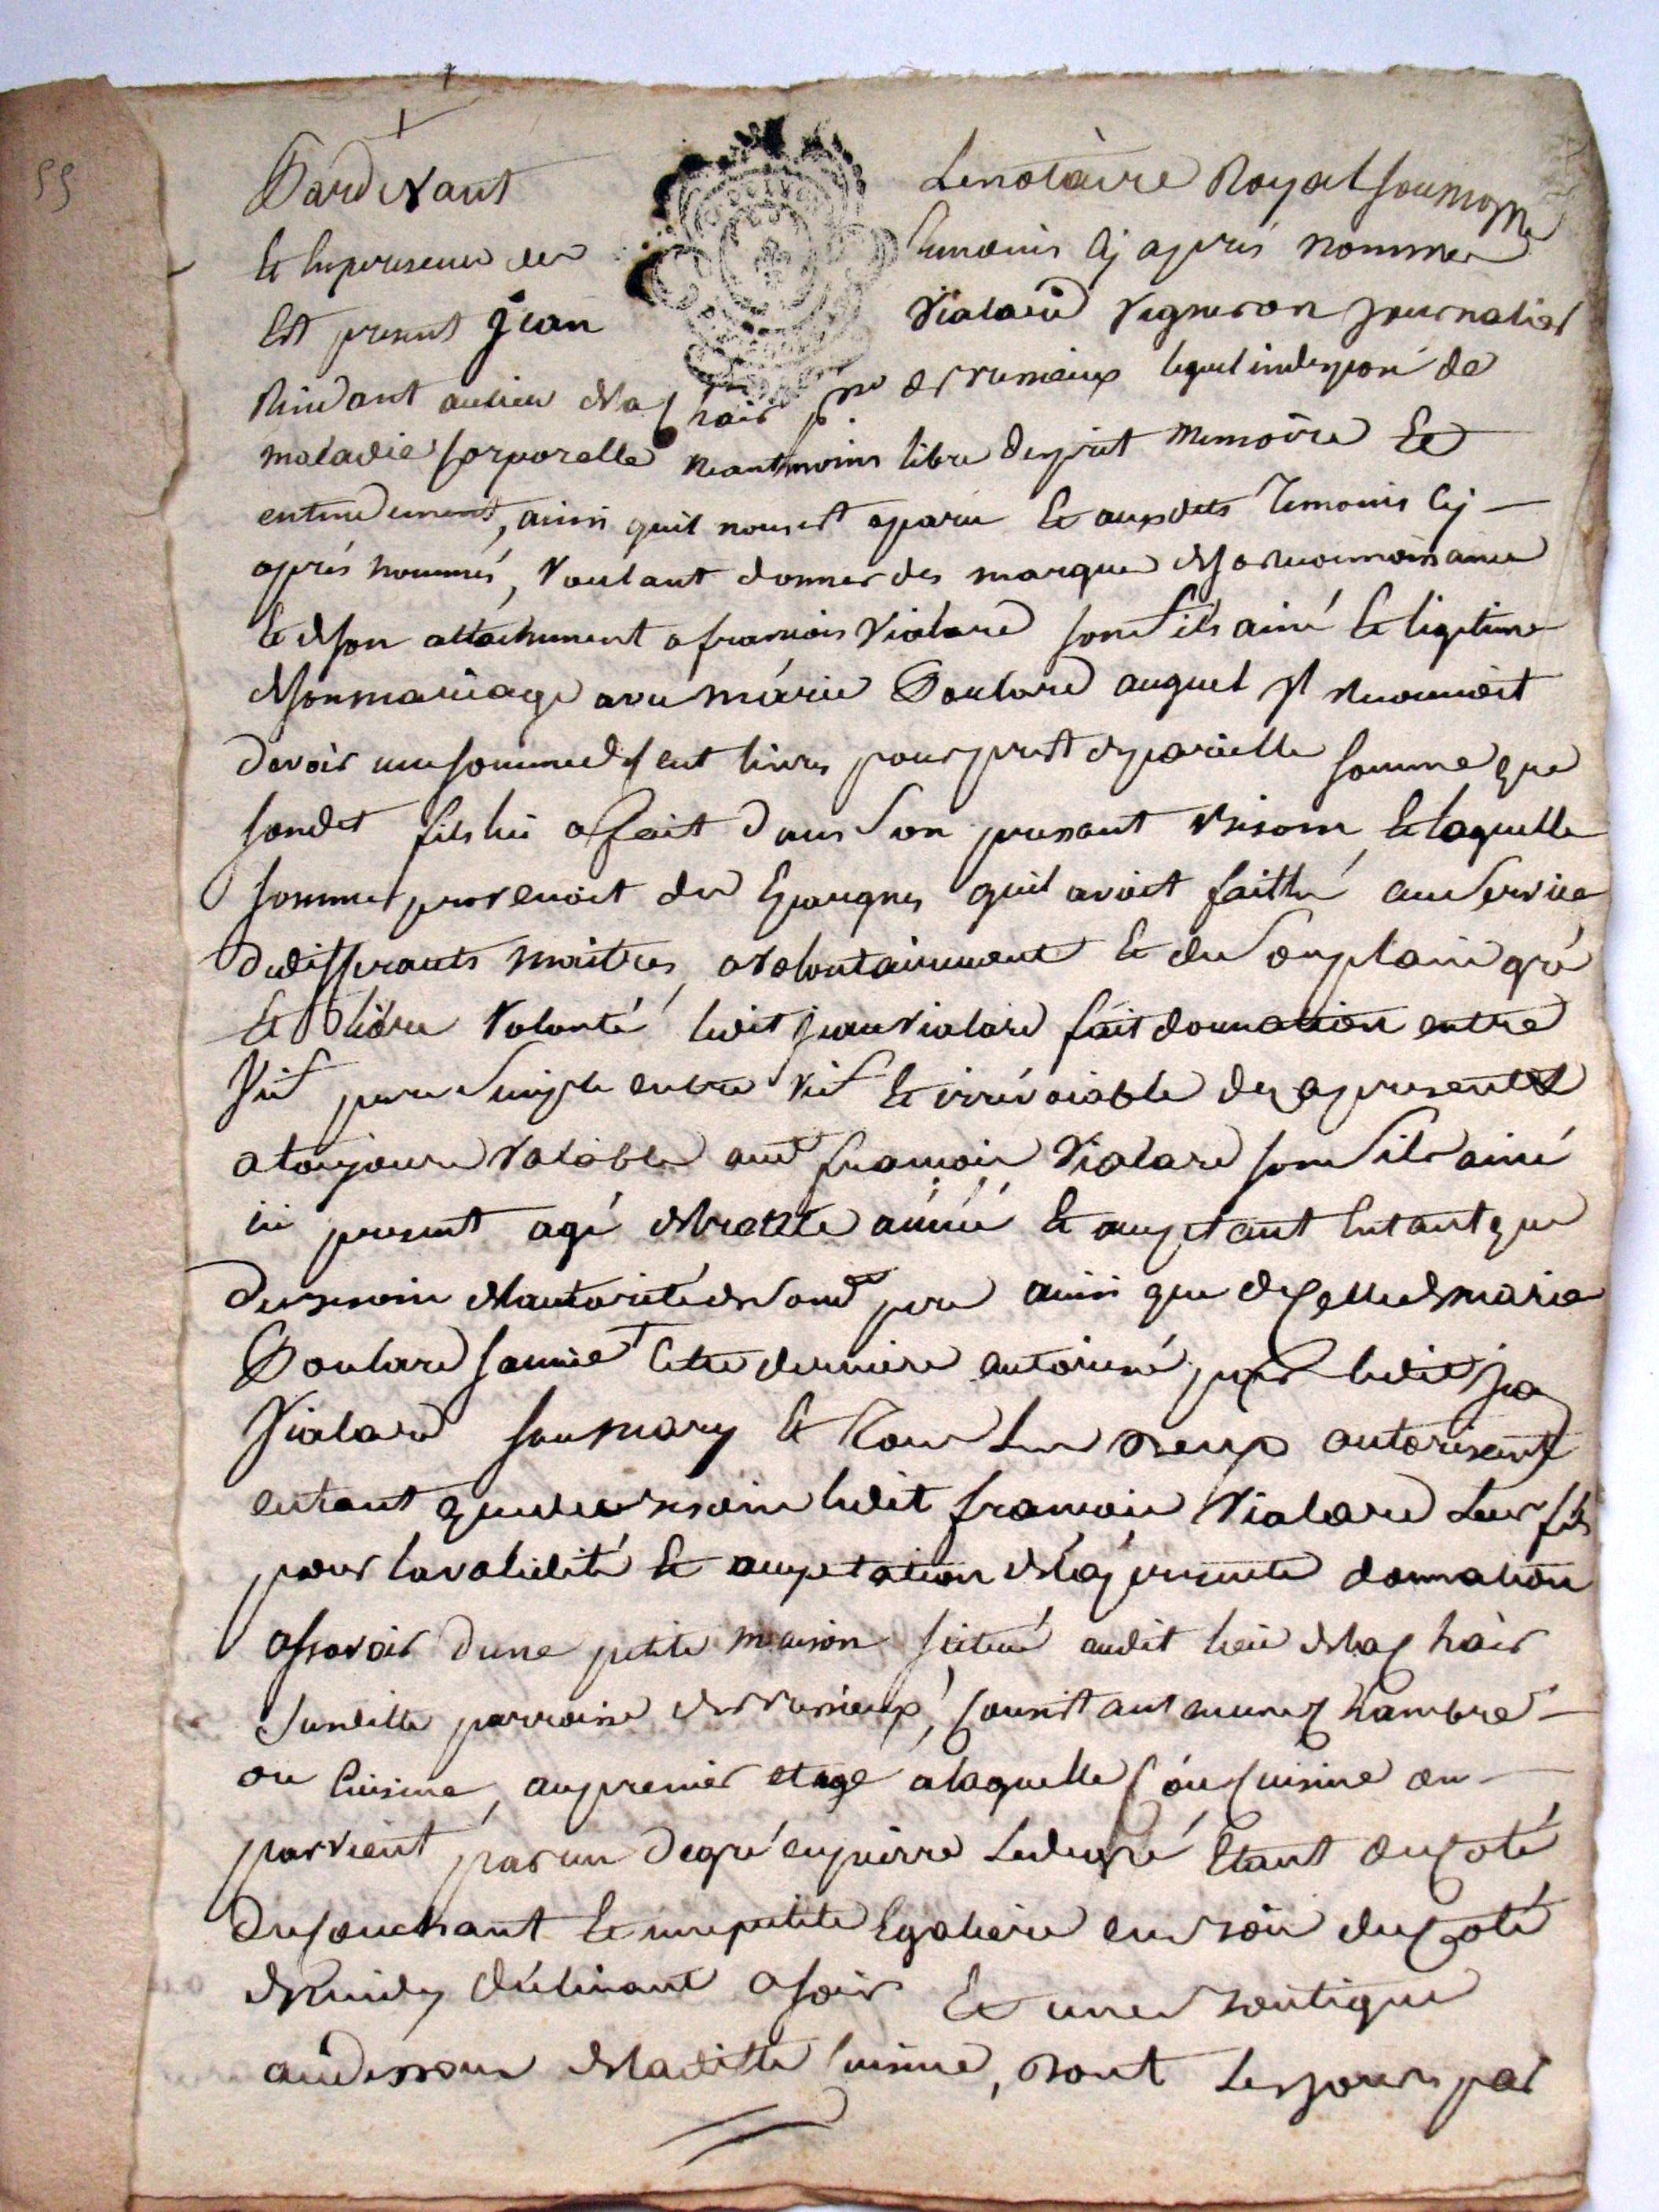 55
Pardevant Le notaire Royal soussigne
Et En presence des temoins Cy apres nommes
Est present Jean Vialard Vigneron Journalier
Residant au lieu de la Chais p.sse lequel indispozé de
maladie Corporelle neantmoins libre desprit memoire Et
entendement, ainsi quil nous est aparu Et auxdits temoins Cy
aprés nommés, Voulant donner des marques de sa reconnoissance
Et de son attachement a francois Vialard son fils ainé Et legitime
de son mariage avec marie Boulard auquel Il reconnoit
devoir une somme de Cent livres pour prest de pareille somme que
sondit fils lui a fait dans son pressant besoin, Et laquelle
somme provenoit des Epargnes quil avoit faitte au service
de differants maitres, a volontairement Et de son plain gré
Et libre Volonté ledit Jean Vialard fait donnation entre
Vif pure simple entre vif Et irrévocable des a present Et
a toujours valable aud francois Vialard son fils ainé
ici present agé de trente année Et acceptant Entant que
de besoin de lautorité de son d pere ainsi que de Celle de marie
Boulard sa mere Cette derniere autorisé par ledit Jn
Vialard son mary Et tous les deux autorisant
entant que de besoin ledit francois Vialard Leur fils
pour la validité Et acceptation de la presente donnation
a savoir d'une petite maison scitué audit lieu de la Chais
susditte parroisse Consistant en une Chambre
ou Cuisine, au premier etage a laquelle C ou Cuisine on
parvient par un degré en pierre Ledegré Etant du Coté
du Couchant Et une petite Egaliere en bois du Coté
de midy declinant a soir Et une boutique
au dessous de laditte Cuisine, dont Les jours par